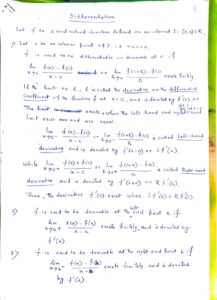 Differentiation
Let f be a real valued function defined on an interval I = [a, b] ⊂ R.
1) Let c be an interior point of I i.e. a < c < b.
f is said to be differentiable or derivable at c if
lim x→c f(x) - f(c) / x - c or lim h→0 f(c+h) - f(c) / h exists finitely
If the limit be l, l is called the derivative or the differential
coefficient of the function f at x = c, and is denoted by f'(c)
The limit exists when the left-hand and right-hand
limit exist and are equal.
lim x→c- f(x) - f(c) / x - c or lim h→0- f(c+h) - f(c) / h is called Left-hand
derivative and is denoted by f'(c-0) or Lf'(c).
While lim x→c+ f(x) - f(c) / x - c or lim h→0+ f(c+h) - f(c) / h is called Right-hand
derivative and is denoted by f'(c+0) or Rf'(c).
Thus, the derivative f'(c) exist when Lf'(c) = Rf'(c)
2) f is said to be derivable at the left end point a if
lim x→a+ f(x) - f(a) / x - a exists finitely and is denoted by
f'(a).
3) f is said to be derivable at the right end point b if
lim x→b- f(x) - f(b) / x - b exists finitely and is denoted
by f'(b).